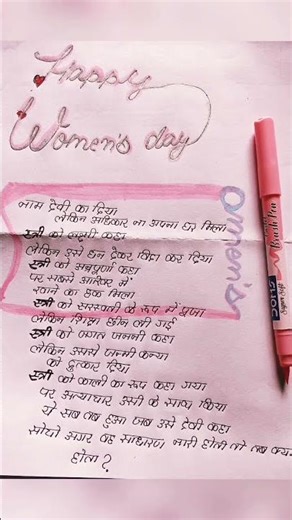 Happy
Women's day
omen's
नाम देवी का दिया
लेकिन अधिकार ना अपना घर मिला
स्त्री को लक्ष्मी कहा
लेकिन उसे धन देकर विदा कर दिया
स्त्री को अन्नपूर्णा कहा
पर सबसे आखिर में
खाने का हक मिला
स्त्री को सरस्वती के रूप में पूजा
लेकिन शिक्षा छीन ली गई
स्त्री को जगत जननी कहा
लेकिन उससे जन्मी कन्या
को दुत्कार दिया
स्त्री को काली का रूप कहा गया
पर अत्याचार उसी के साथ किया
ये सब तब हुआ जब उसे देवी कहा
सोचो अगर वह साधारण नारी होती तो तब क्या
होता ?
Brush Pen
DOMS